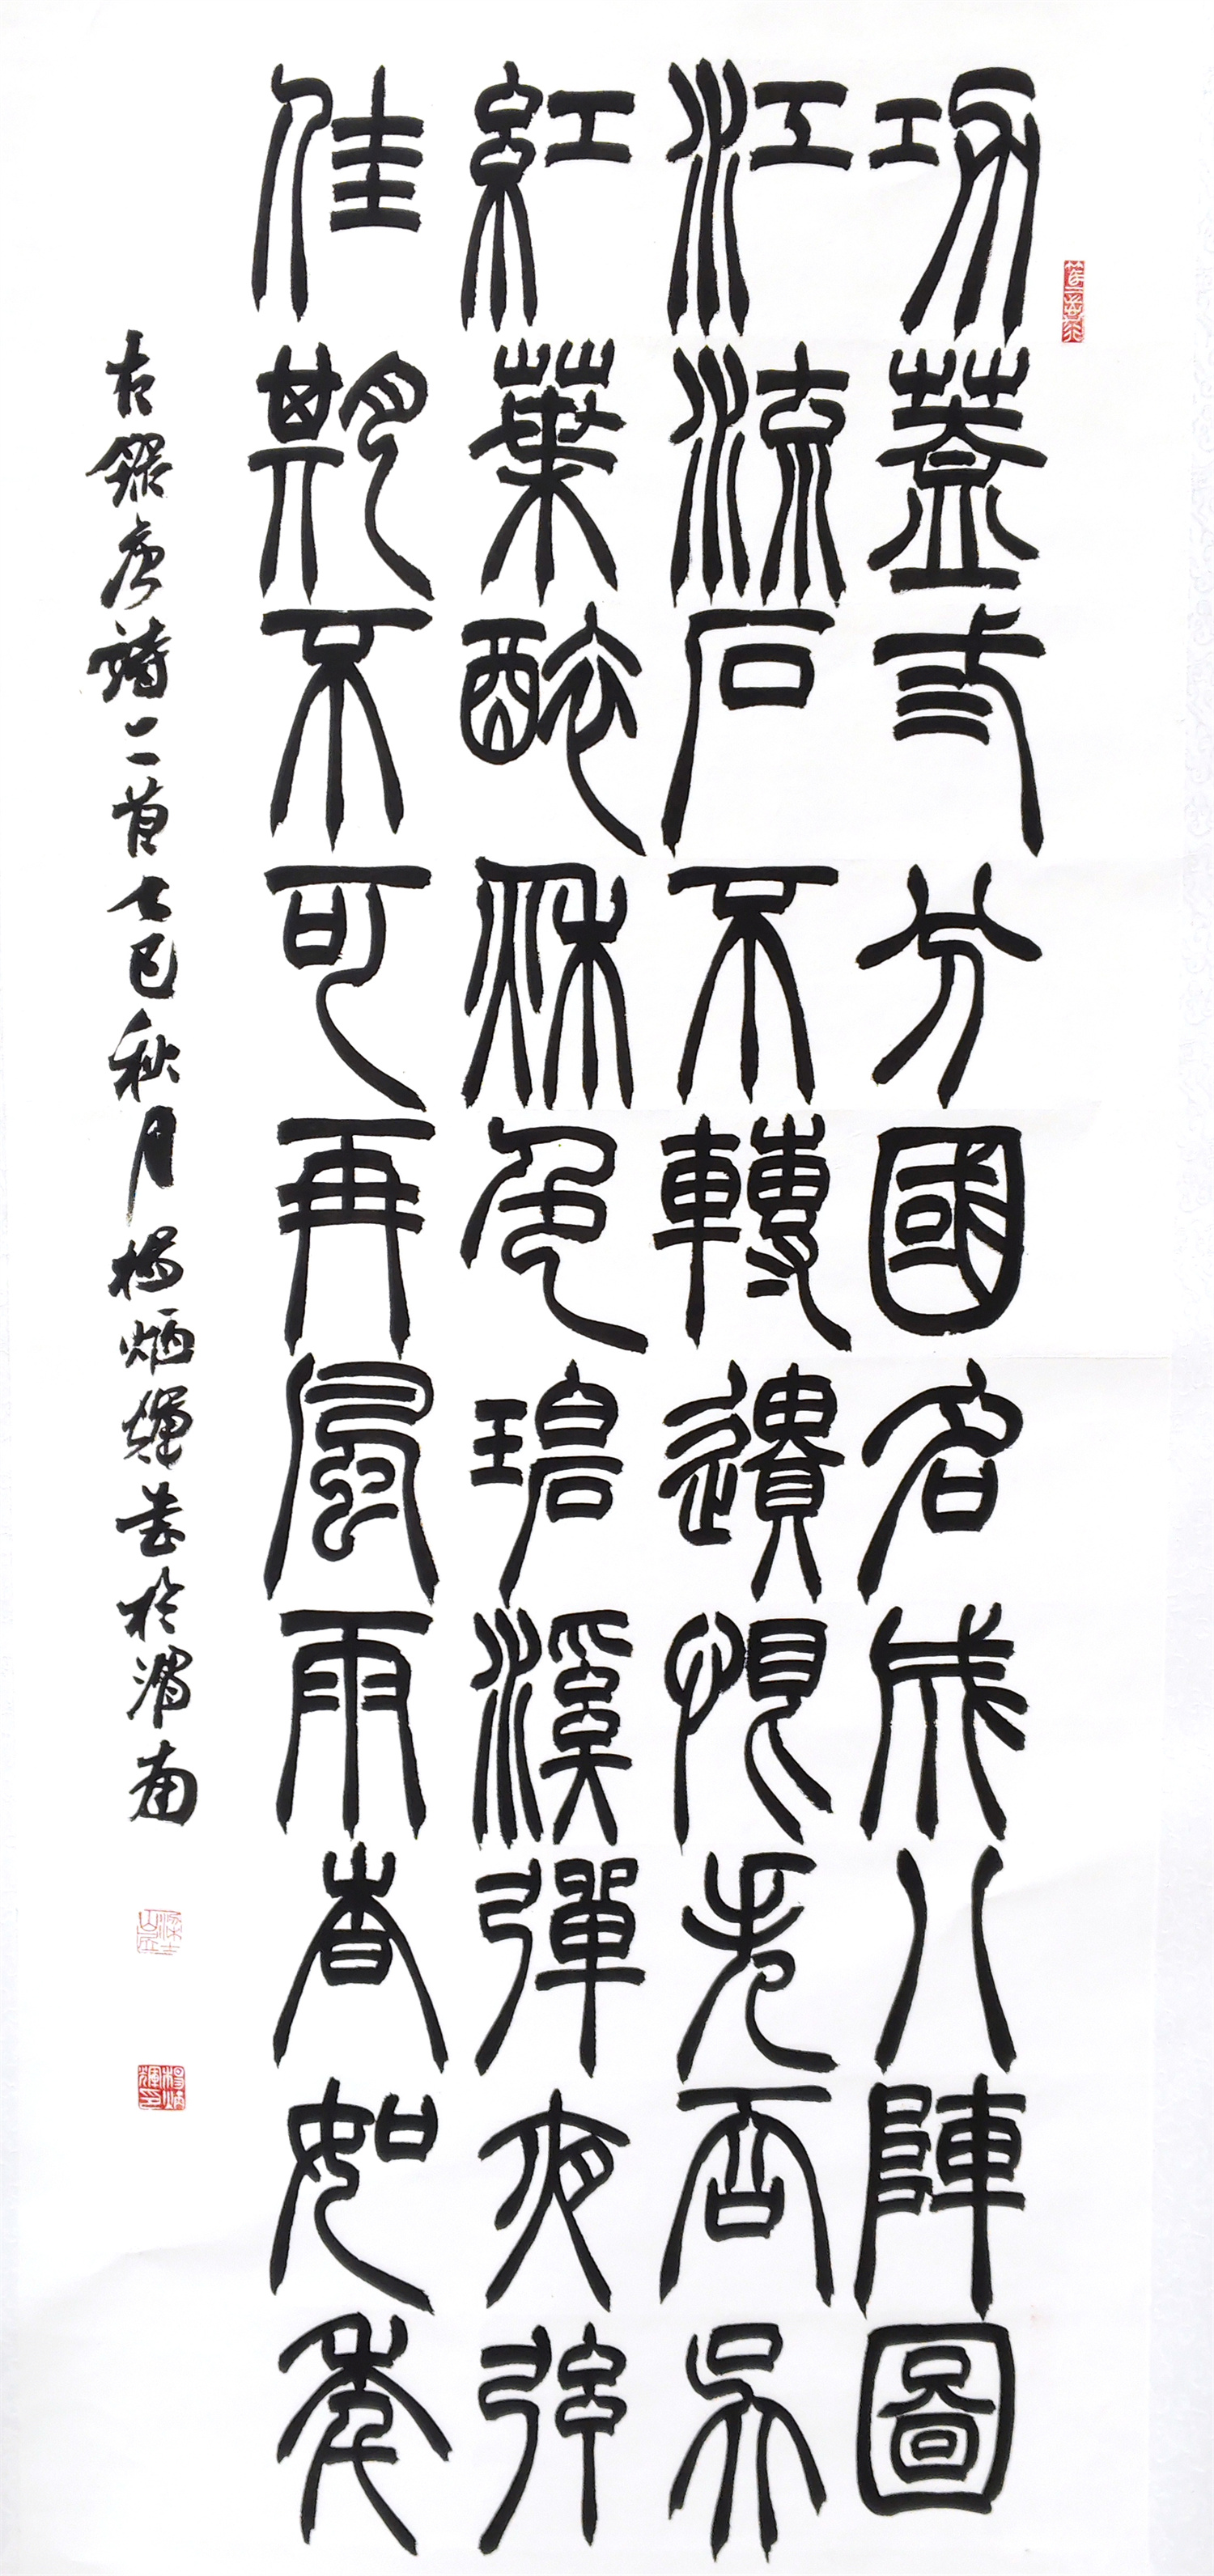 功蓋弎分國名成八陣圖
江流石不轉遺恨失吞吳
紅葉醉秋色碧溪彈夜弦
佳期不可再風雨杳如年
右錄唐詩二首乙巳秋月楊炳輝書於渭南
楊炳輝印